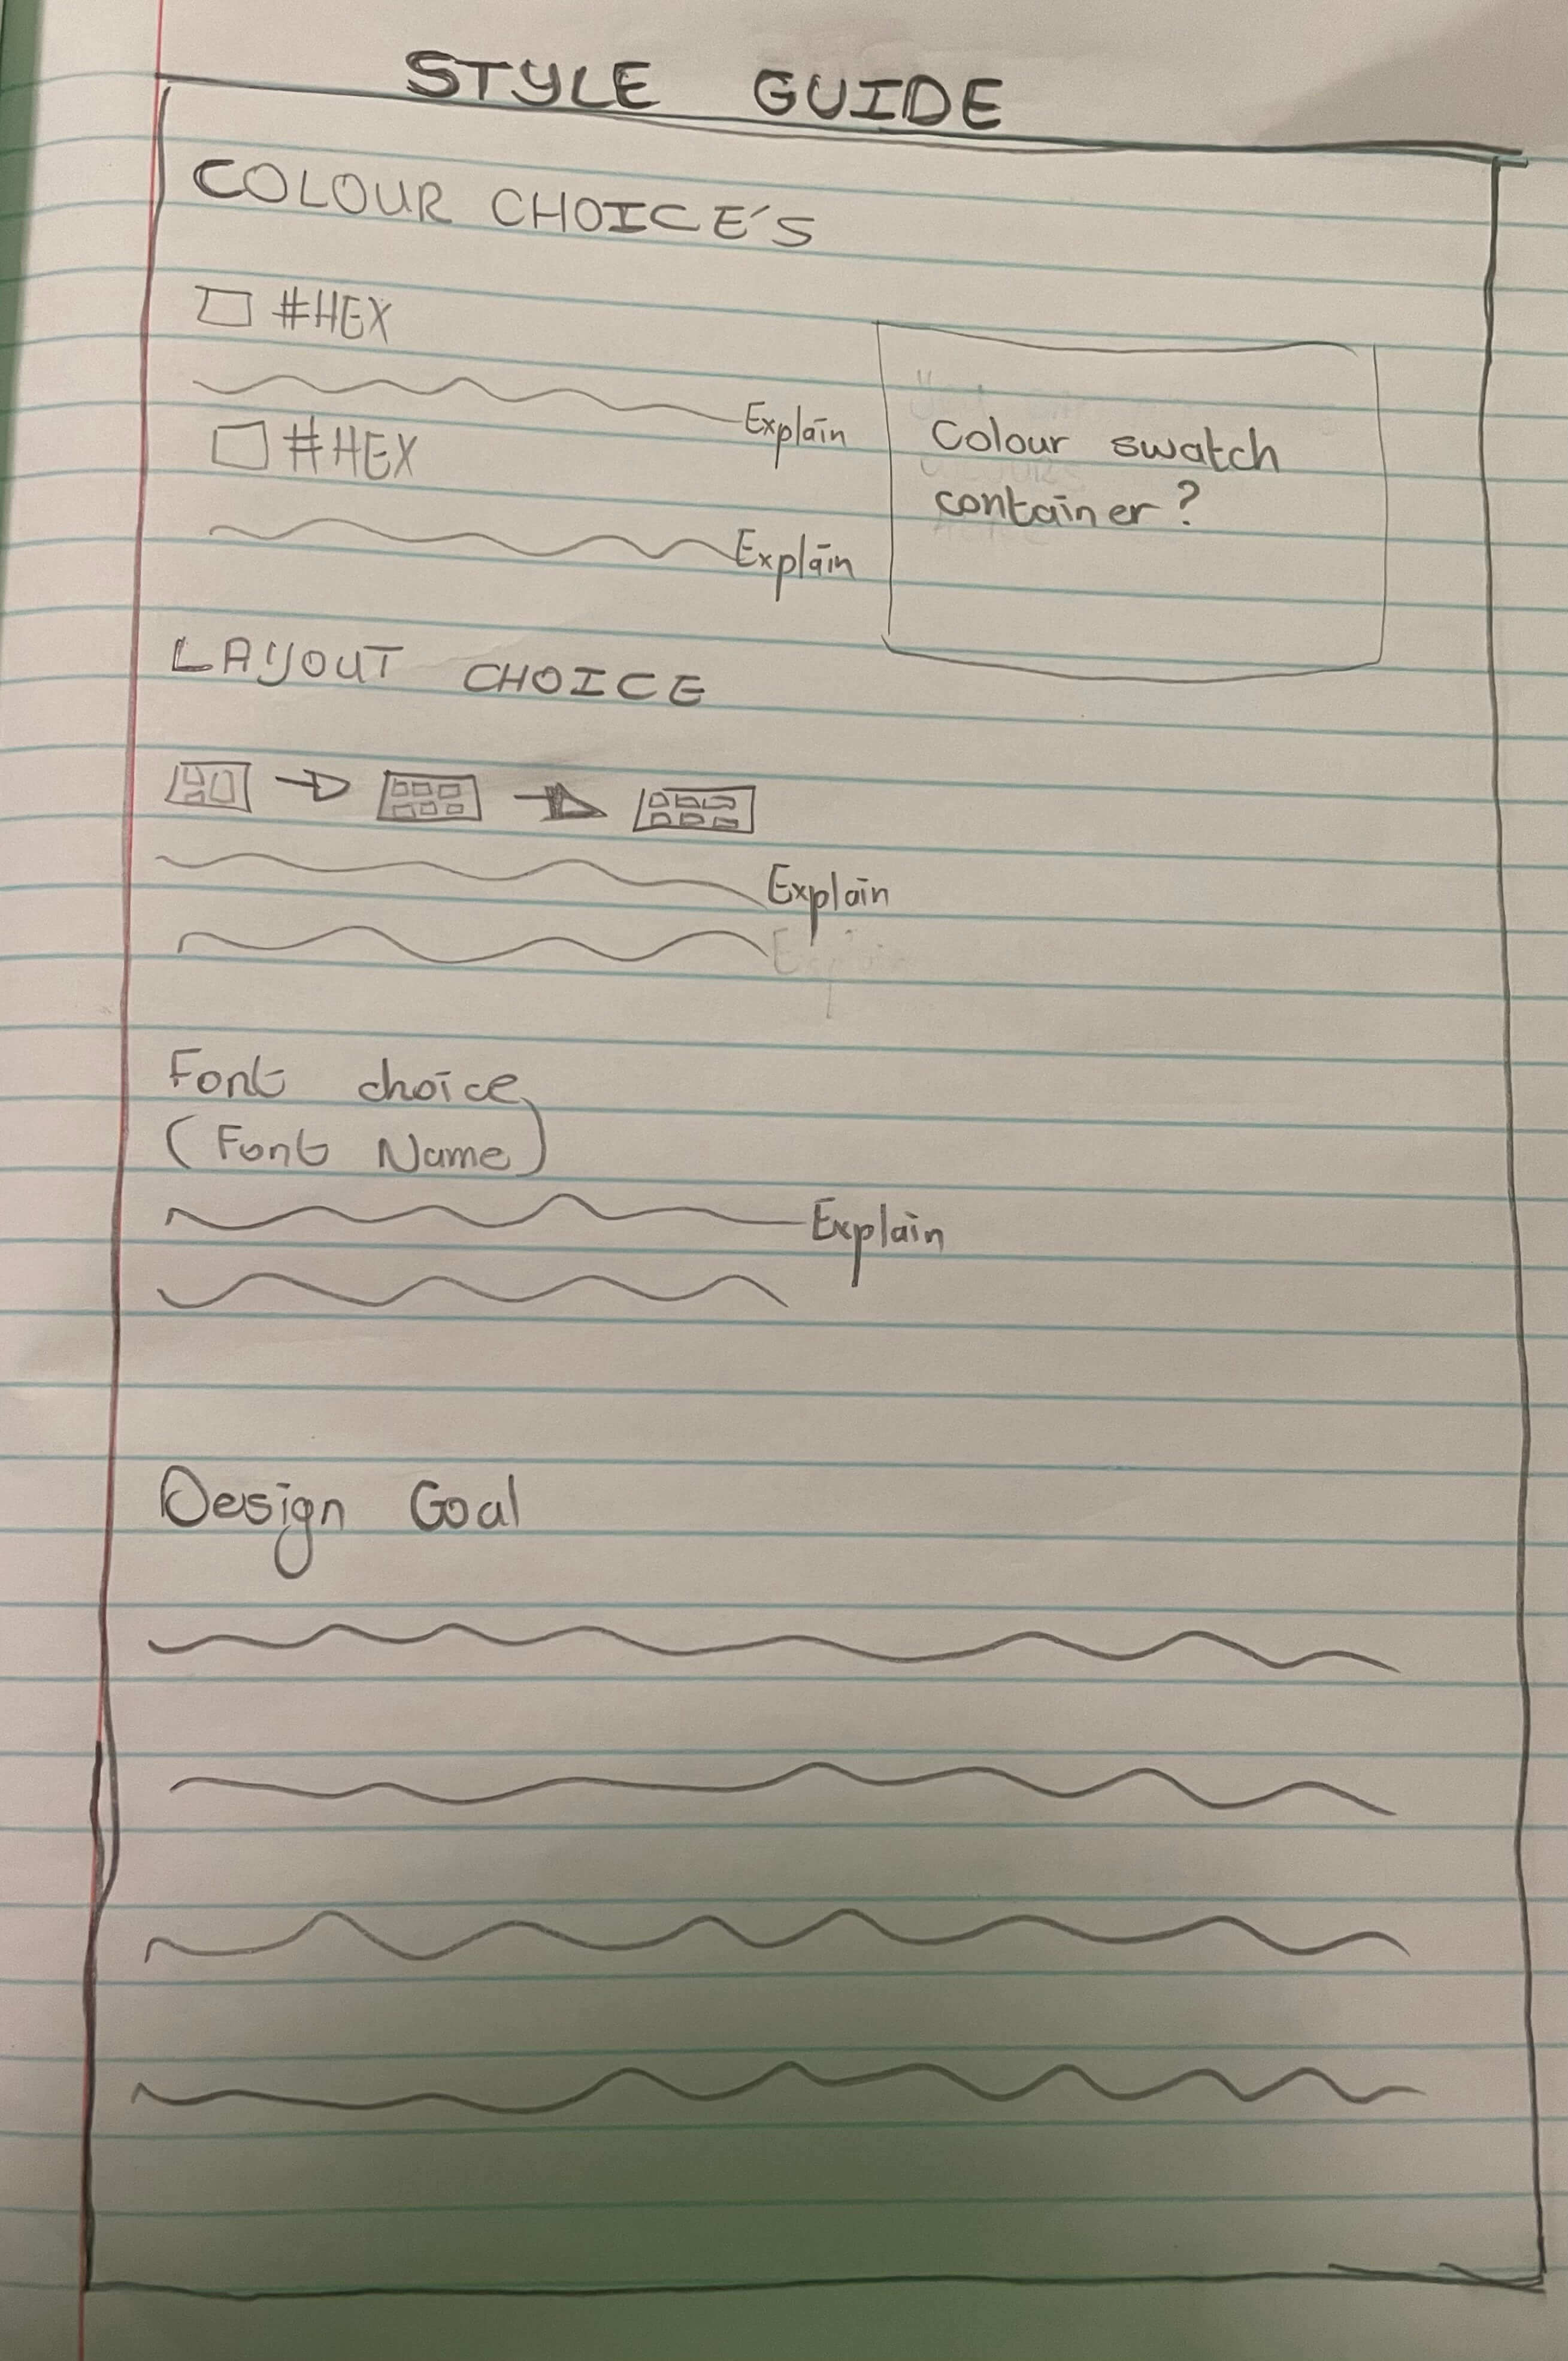 STYLE GUIDE
COLOUR CHOICE'S
#HEX
Explain
#HEX
Explain
Colour swatch
container?
LAYOUT CHOICE
Explain
Font choice
(Font Name)
Explain
Design Goal